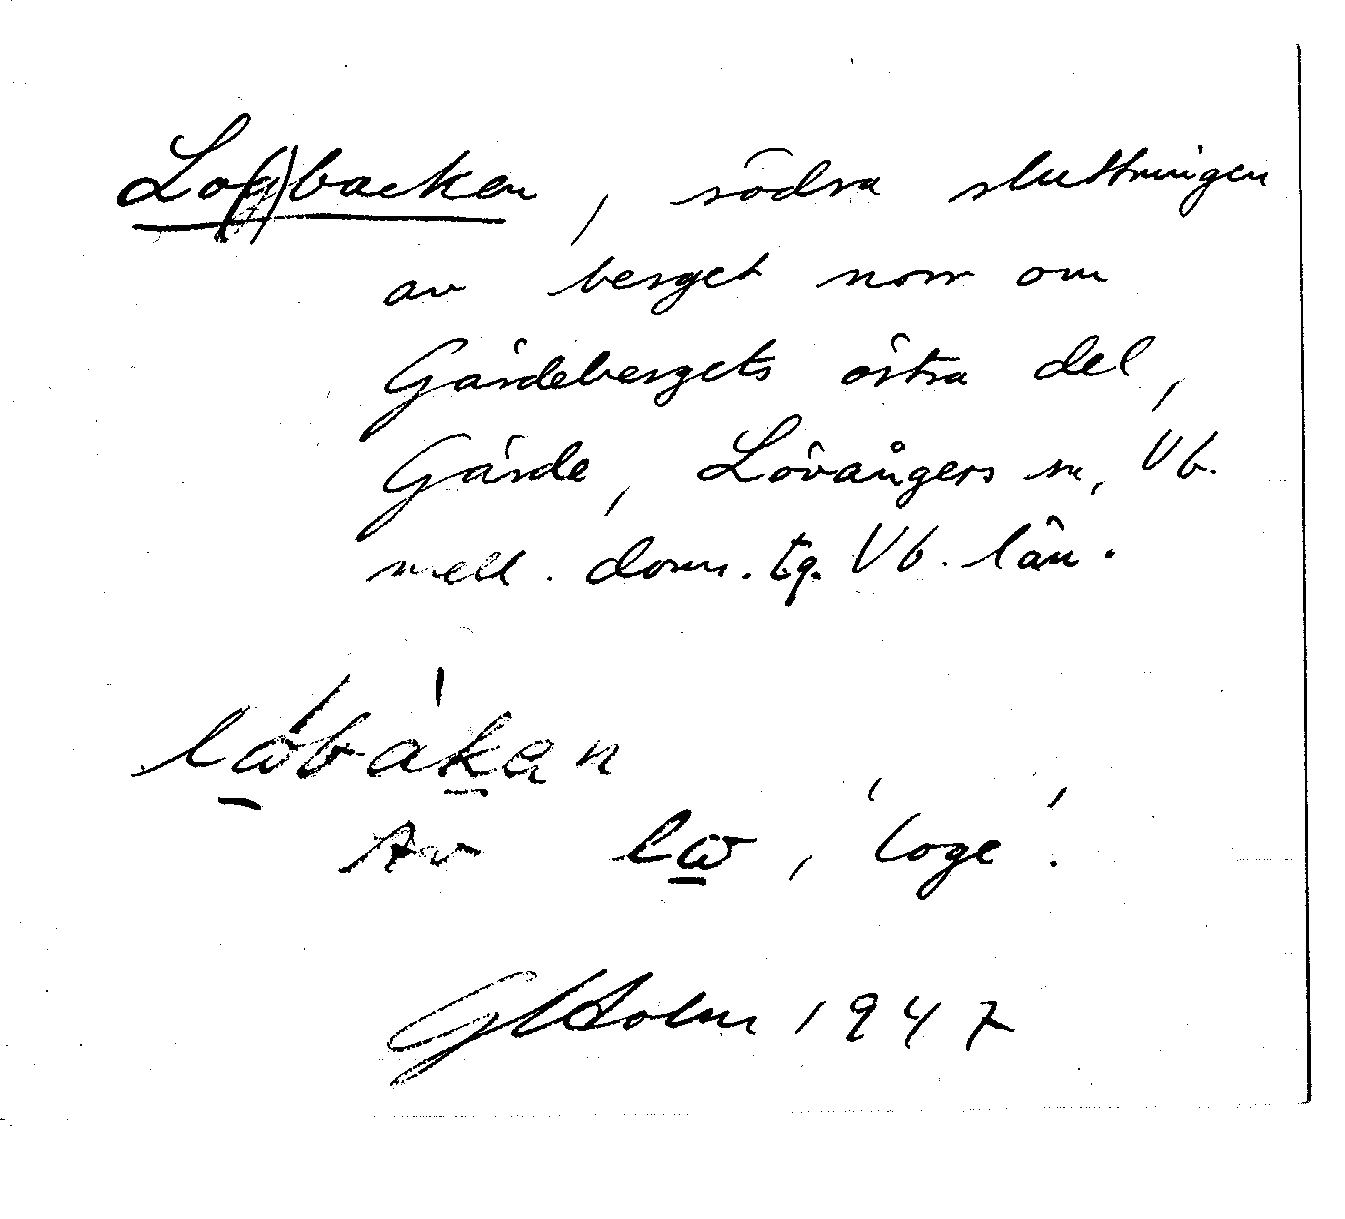 Lo(g)backen, södra sluttningen
av berget norr om
Gärdebergets östra del,
Gärde, Lövångers sn, Vb.
mell. doms. tg. Vb. län.
lω̱bàḵən
Av lω̱, 'loge'.
G Holm 1947